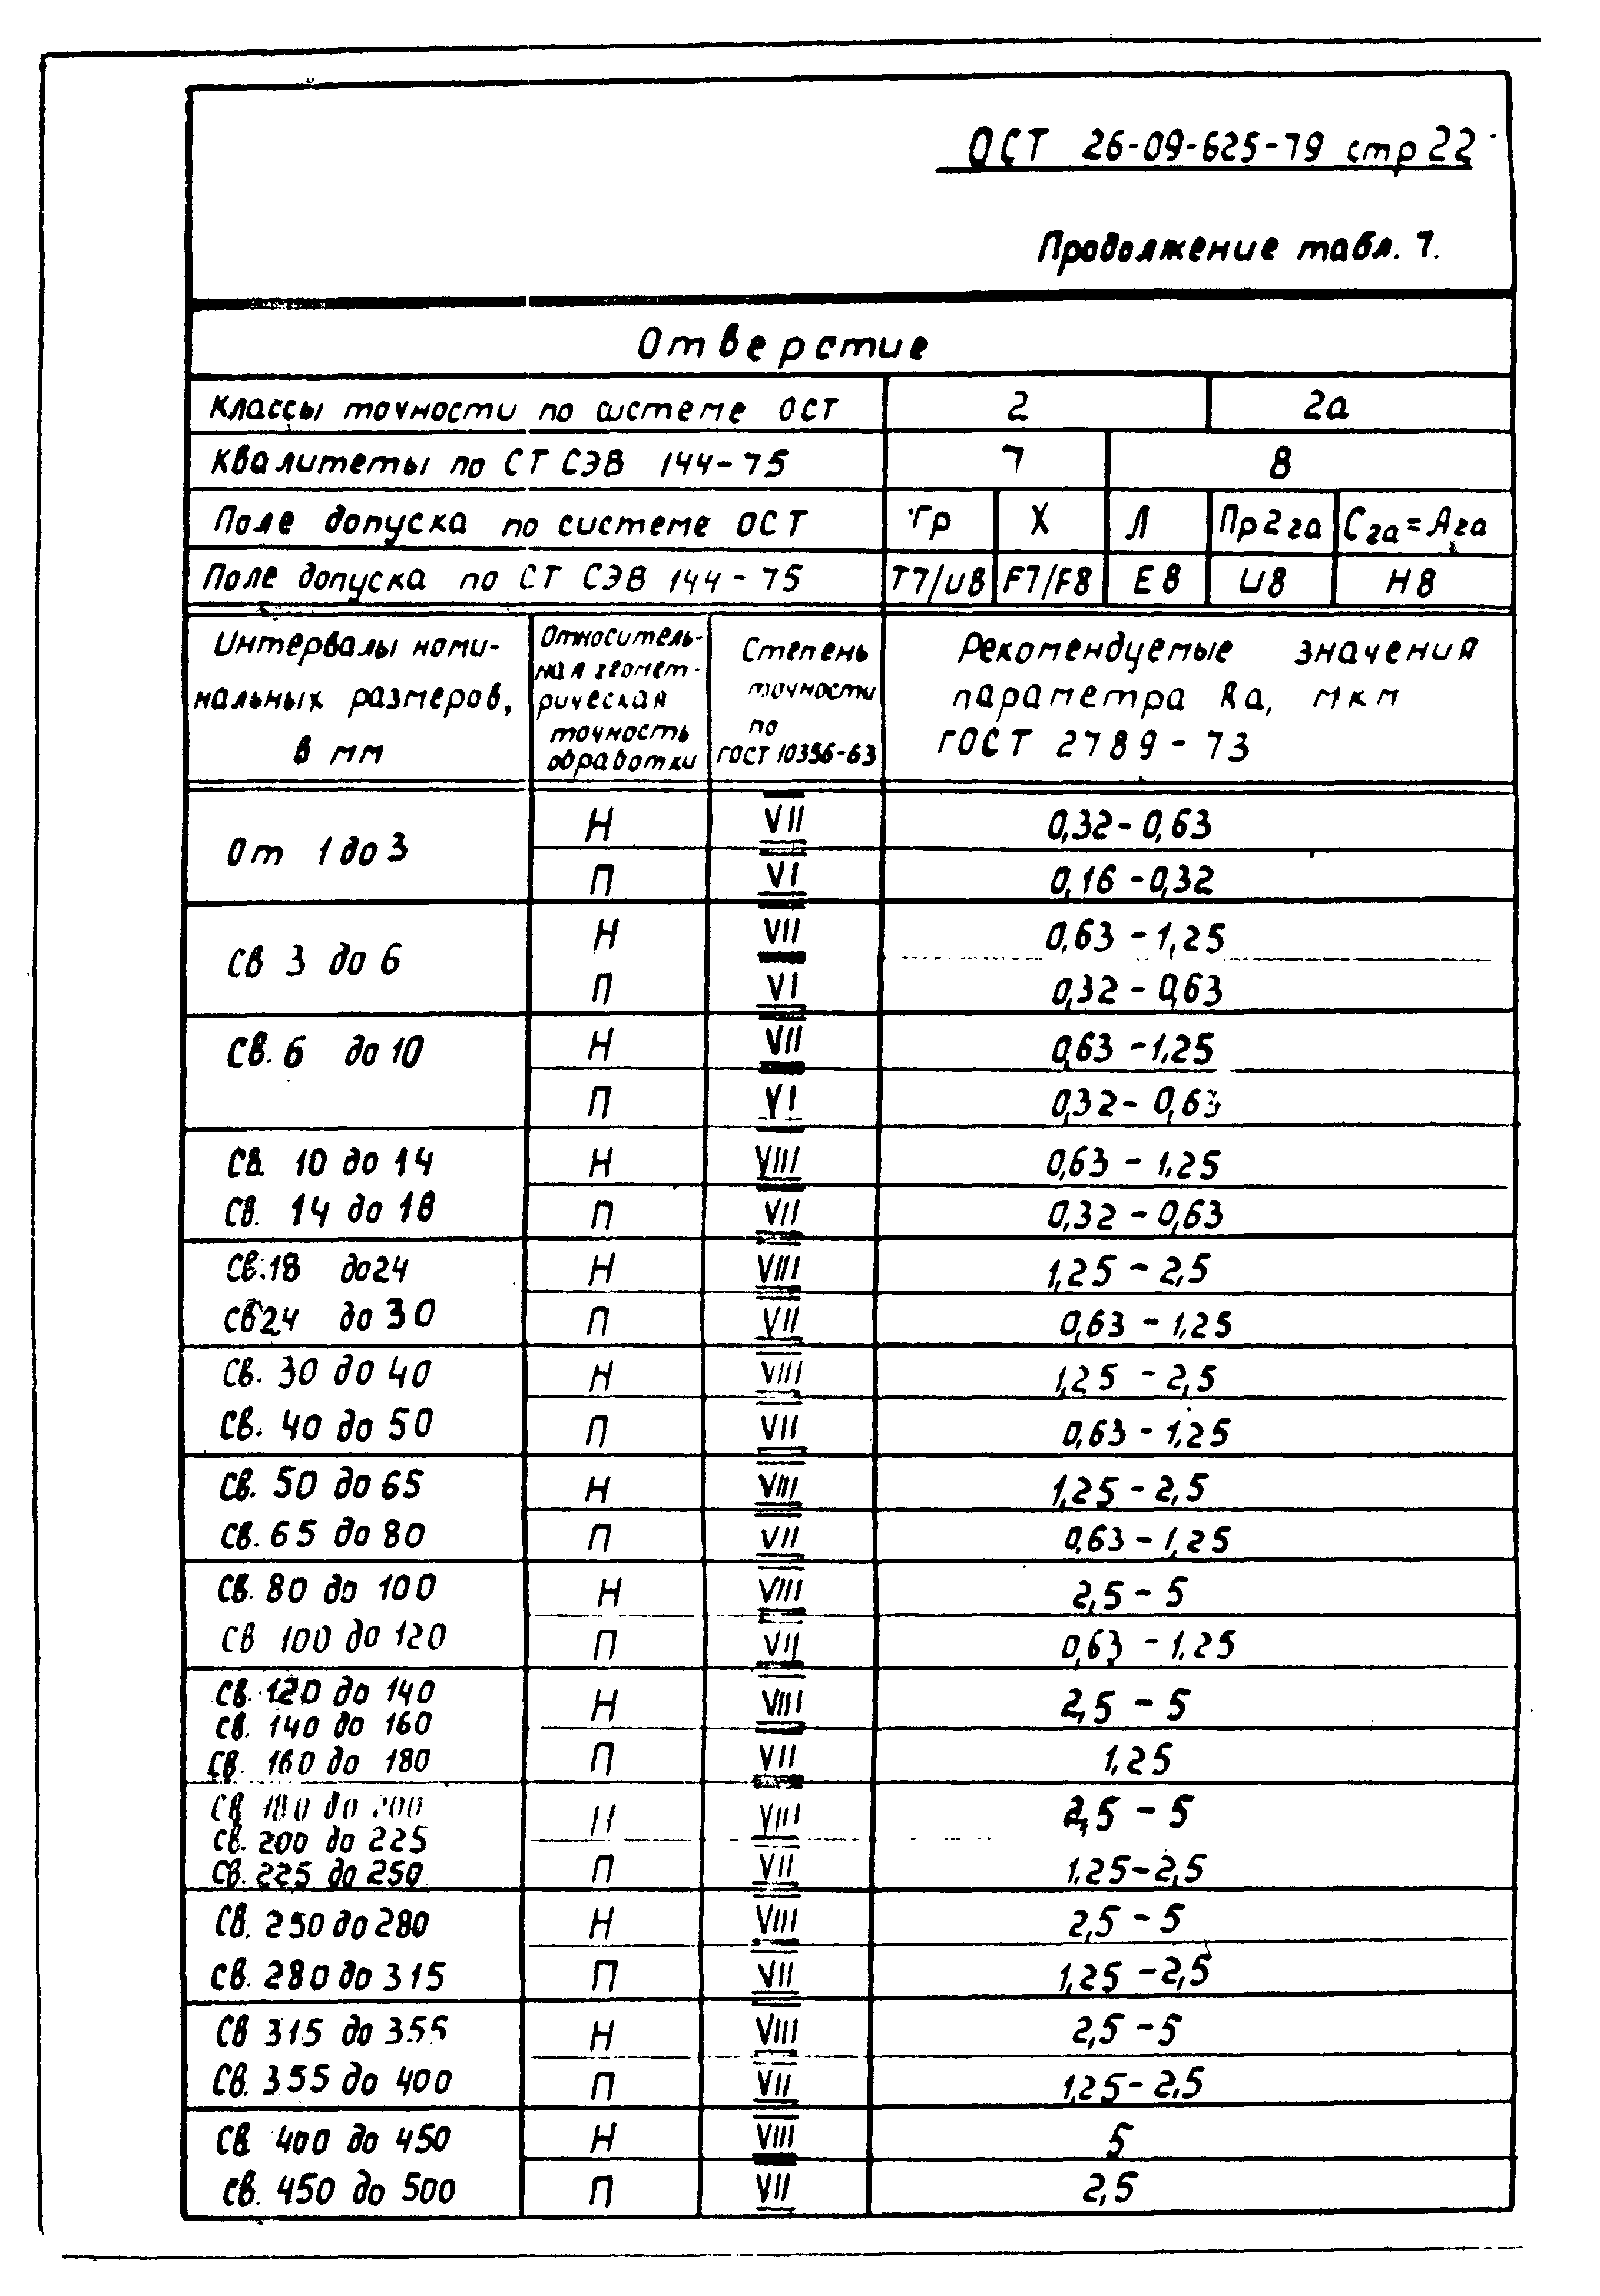 ОСТ 26-09-625-79 стр 22
Продолжение табл. 7.
Отверстие
Классы точности по системе ОСТ 2 2а
Квалитеты по СТ СЭВ 144-75 7 8
Поле допуска по системе ОСТ Гр Х Л Пр2 2а С2а=А2а
Поле допуска по СТ СЭВ 144-75 T7/U8 F7/F8 E8 U8 H8
Интервалы номи-
нальных размеров,
в мм
Относитель-
ная геомет-
рическая
точность
обработки
Степень
точности
по
ГОСТ 10356-63
Рекомендуемые значения
параметра Ra, мкм
ГОСТ 2789-73
От 1 до 3
Н VII 0,32-0,63
П VI 0,16-0,32
Св 3 до 6
Н VII 0,63-1,25
П VI 0,32-0,63
Св. 6 до 10 Н VII 0,63-1,25
П VI 0,32-0,63
Св. 10 до 14 Н VIII 0,63-1,25
Св. 14 до 18 П VII 0,32-0,63
Св. 18 до 24 Н VIII 1,25-2,5
Св 24 до 30 П VII 0,63-1,25
Св. 30 до 40 Н VIII 1,25-2,5
Св. 40 до 50 П VII 0,63-1,25
Св. 50 до 65 Н VIII 1,25-2,5
Св. 65 до 80 П VII 0,63-1,25
Св. 80 до 100 Н VIII 2,5-5
Св 100 до 120 П VII 0,63-1,25
Св. 120 до 140
Св. 140 до 160
Св. 160 до 180
Н VIII 2,5-5
П VII 1,25
Св 180 до 200
Св. 200 до 225
Св. 225 до 250
Н VIII 2,5-5
П VII 1,25-2,5
Св. 250 до 280 Н VIII 2,5-5
Св. 280 до 315 П VII 1,25-2,5
Св 315 до 355 Н VIII 2,5-5
Св. 355 до 400 П VII 1,25-2,5
Св. 400 до 450 Н VIII 5
Св. 450 до 500 П VII 2,5